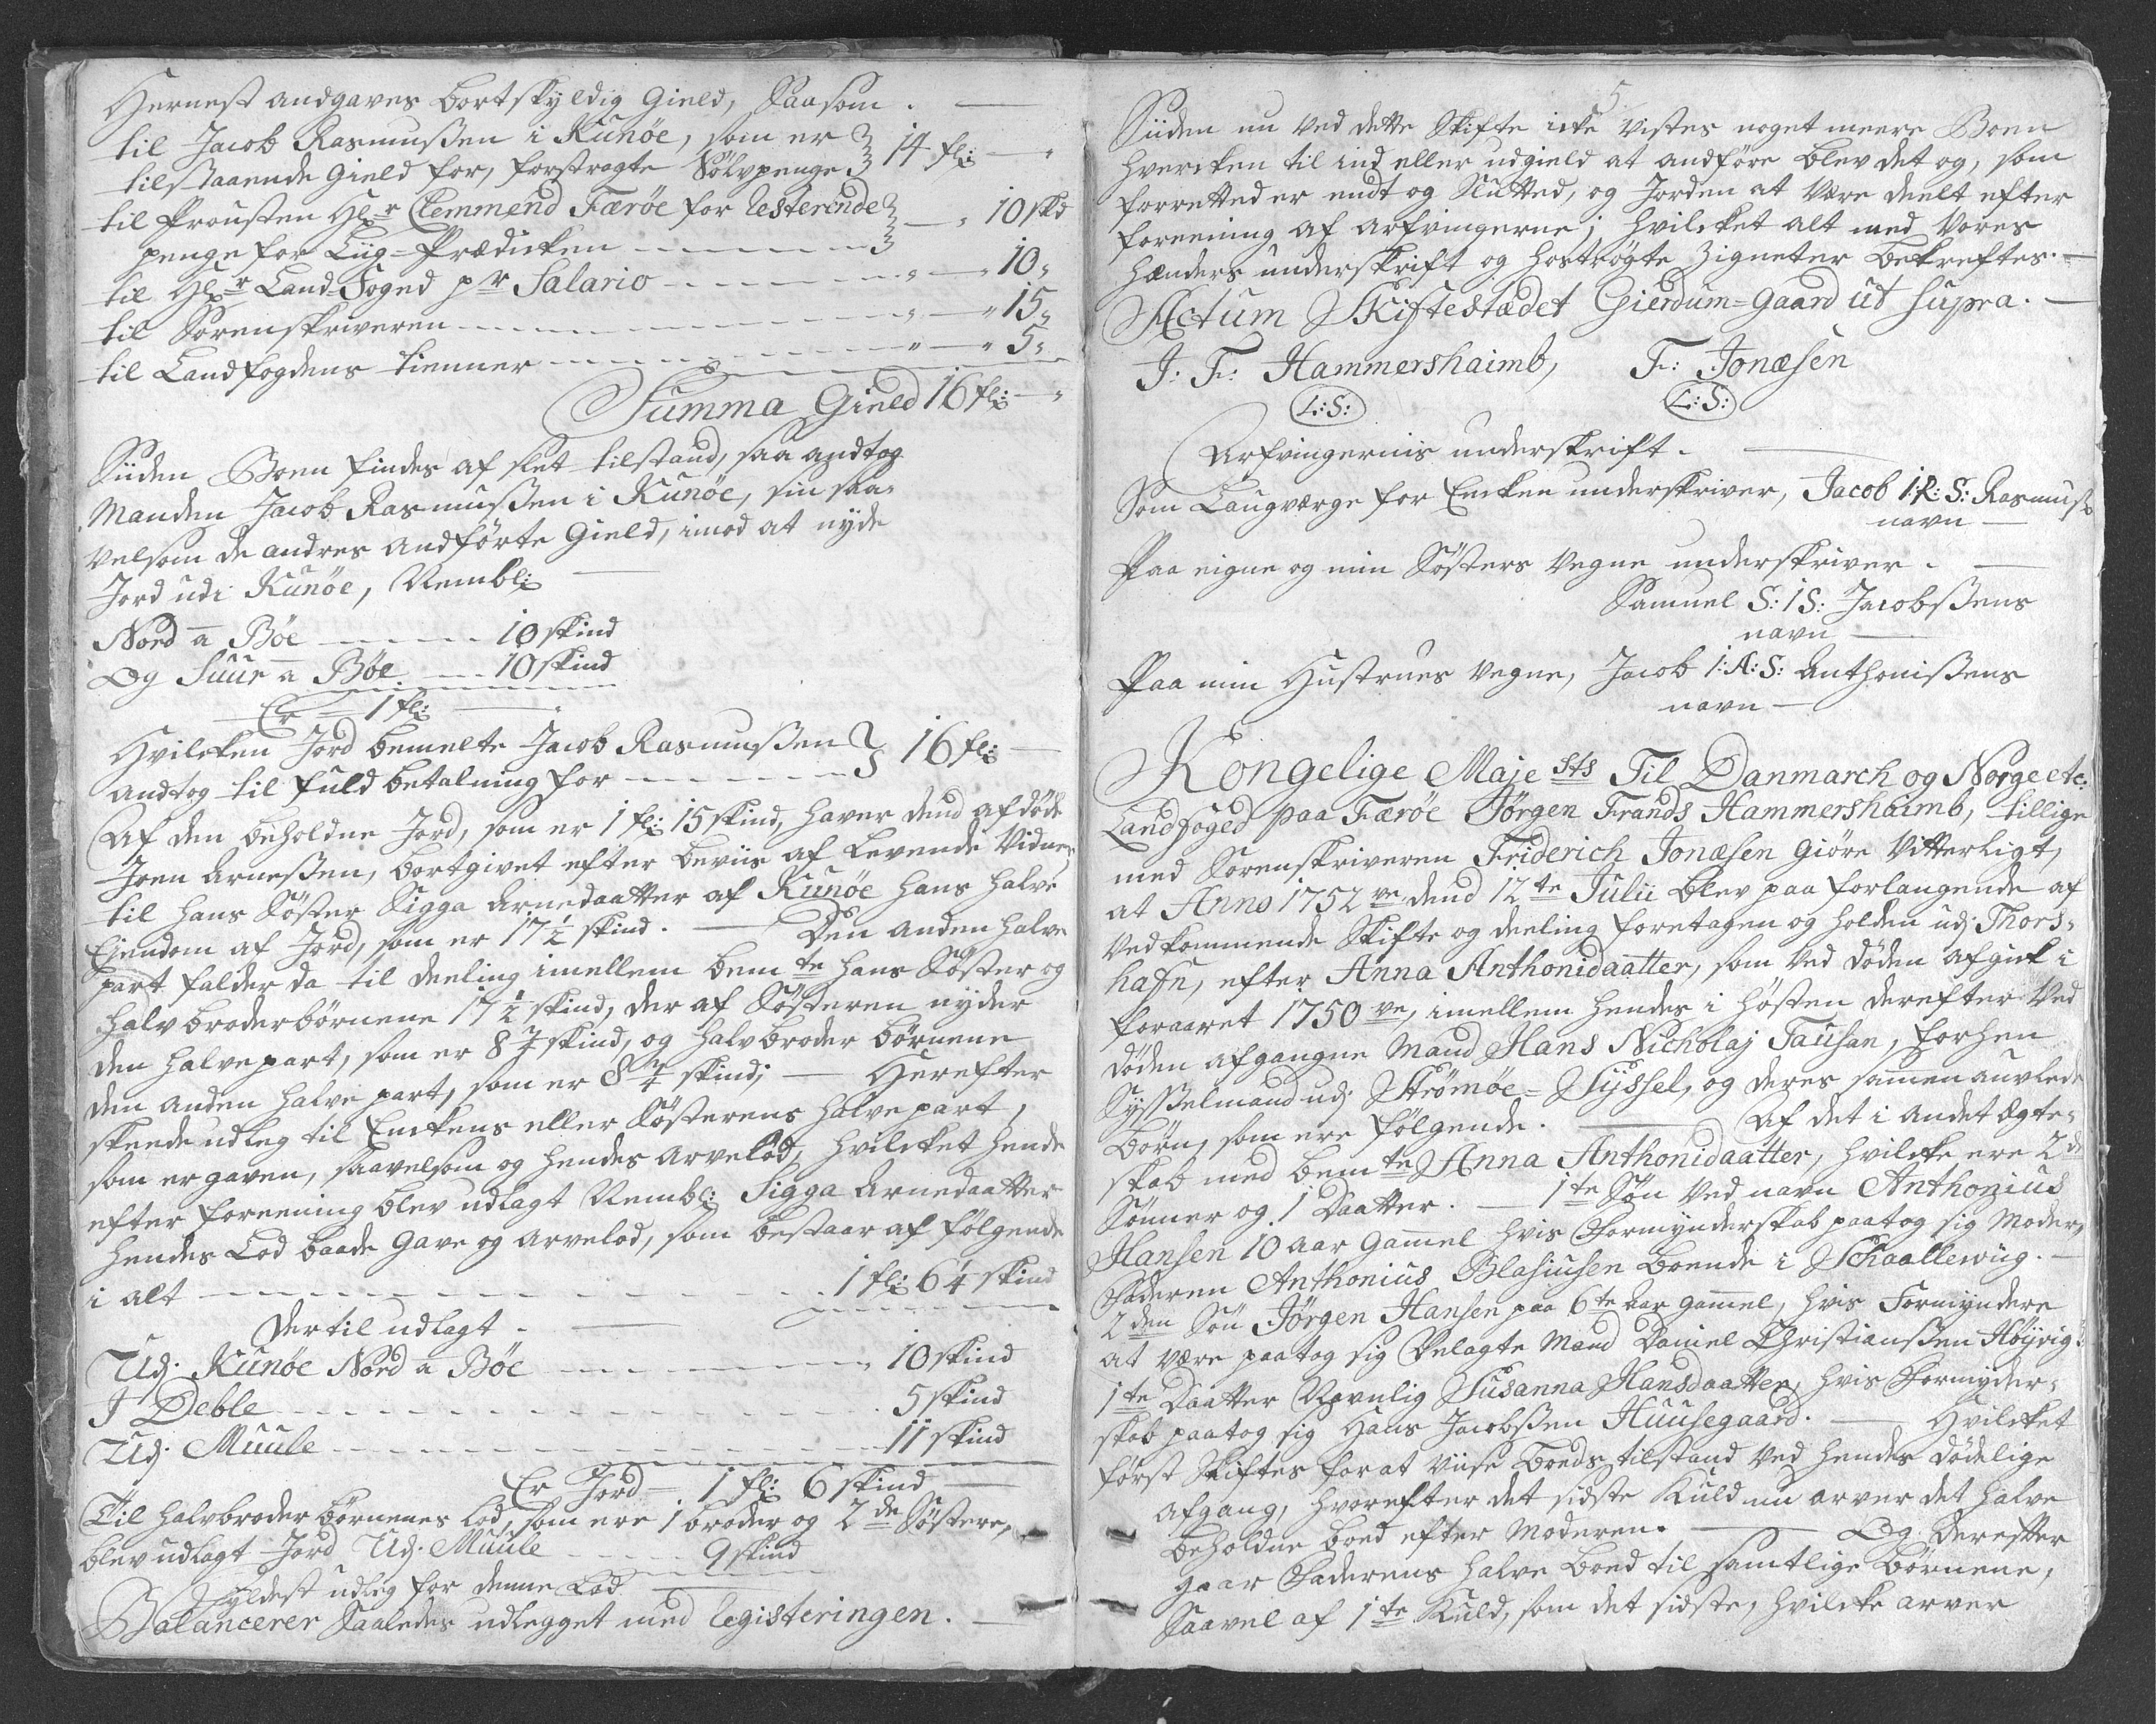 Hernest andgaves bortskyldig Gield, Saasom.
til Jacob Rasmussen i Kunøe, som er
tilstaaende Gield for, forstragte Sølvpenge 14 fl: — „
til Prousten Hr Clemmend Færøe for Resterende
penge for Liig-Prædicken — „ 10 skd
til Hr Land-Foged pr Salario — „ — „ 10 „
til Sorenskriveren — „ — „ 15 „
til Landfogdens tienner — „ — „ 5 „
Summa Gield 16 fl: — „
Siiden Boen findes af slet tilstand, saa andtog
Manden Jacob Rasmussen i Kunøe, sin saa-
velsom de andres andførte Gield, imod at nyde
Jord udi Kunøe, Nembl:
Nord a Bøe — 10 skind
Og Suur a Bøe — 10 skind
Er — 1 fl:
Hvilcken Jord bemelte Jacob Rasmussen
andtog til fuld betalning for — 16 fl:
Af den beholdne Jord, som er 1 fl: 15 skind, haver dend afdøde
Joen Arnessen, bortgivet efter beviis af Levende Vidner
til hans Søster Sigga Arnedaatter af Kunøe hans halve
Ejendom af Jord, som er 17½ skind. — Den anden halve
part falder da til deeling imellem bemte hans Søster og
halvbroderbørnene 17½ skind, der af Søsteren nyder
den halvepart, som er 8¾ skind, og halvbroder børnene
den anden halve part, som er 8¾ skind; — Herefter
skeede udleg til Enckens eller Søsterens halvepart,
som er gaven, saavelsom og hendes arvelod, hvilcket hende
efter foreening blev udlagt Nembl: Sigga Arnedaatter
hendes Lod baade Gave og arvelod, som bestaar af følgende
i alt — 1 fl: 6¼ skind
Dertil udlagt.
Udj Kunøe Nord a Bøe — 10 skind
I Deble — 5 skind
Udj Muule — 11 skind
Er Jord — 1 fl: 6 skind
Til halvbroder børnenes lod, som ere 1 broder og 2de Søstere,
blev udlagt Jord Udj Muule — 9 skind
Fyldest udleg for denne Lod.
Balancerer Saaledes udlegget med Registeringen.
5.
Siiden nu ved dette Skifte icke vistes noget meere Boen
hvercken til ind eller udgield at andføre blev det og, som
forretted er endt og Sluttet, og Jorden at være deelt efter
foreening af arfvingerne; hvilcket alt med Vores
hænders underskrift og hostrøgte Zigneter bekreftes.
Actum Skiftestædet Gierdum-Gaard ut supra.
J: F: Hammershaimb, F: Jonæsen
L: S: L: S:
Arfvingerniis underskrift.
Som Laugværge for Encken underskriver, Jacob I: R: S: Rasmuss:
navn
Paa eigne og min Søsters Vegne underskriver.
Samuel S: I S: Jacobssens
navn
Paa min Hustrues Vegne, Jacob I: A: S: Anthonissens
navn
Kongelige Majests Til Danmarch og Norge etc:
Landfoged paa Færøe Jørgen Frands Hammershaimb, tillige
med Sorenskriveren Friderich Jonæsen giøre Vitterligt,
at Anno 1752ve dend 12te Julii blev paa forlangende af
Vedkommende Skifte og deeling foretagen og holden udj Thors-
hafn, efter Anna Anthonidaatter, som Ved døden afgick i
foraaret 1750ve, imellem hendes i høsten derefter Ved
døden afgangne Mand Hans Nicholaj Tausan, forhen
Sysselmand udj Strømøe-Syssel, og deres sammenavlede
Børn, som ere følgende. — Af det i andet Ægte-
skab med bemte Anna Anthonidaatter, hvilcke ere 2de
Sønner og 1 Daatter. — 1te Søn Ved navn Anthonius
Hansen 10 aar gammel hvis Formynderskab paatog sig Moder-
Faderen Anthonius Blasiusen boende i Schaallewiig.
2den Søn Jørgen Hansen paa 6te aar gammel, hvis Formyndere
at være paatog sig Velagte Mand Daniel Christianssen Høyvig.
1te Daatter Navnlig Susanna Hansdaatter, hvis Formyder-
skab paatog sig Hans Jacobssen Huusegaard. — Hvilcket
først Skiftes for at viise Boeds tilstand Ved hendes dødelige
afgang, hvorefter det sidste Kuld nu arver det halve
beholdne boed efter Moderen. — Og derefter
gaar Faderens halve boed til samtlige børnene,
Saavel af 1te Kuld, som det sidste, hvilcke arver